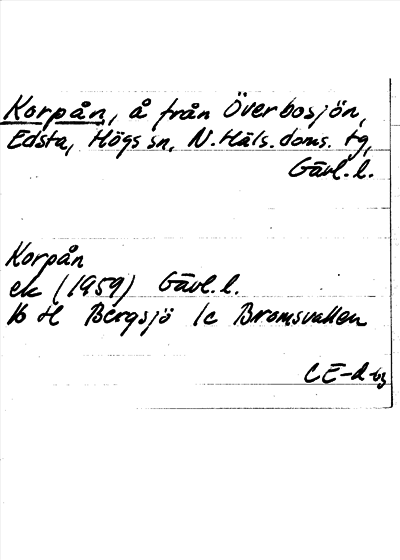 Korpån, å från Överbosjön,
Edsta, Högs sn, N. Häls. doms. tg,
Gävl. l.
Korpån
ek (1959) Gävl. l.
16 H Bergsjö 1c Bromsvallen
CE-d